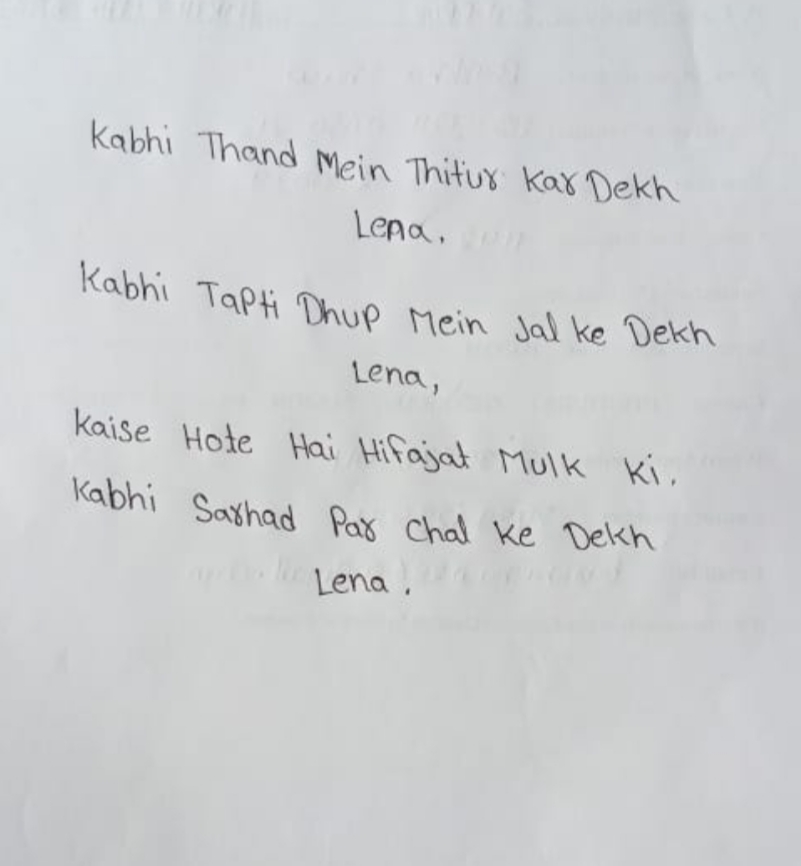 Kabhi Thand Mein Thitur Kar Dekh
Lena.
Kabhi Tapti Dhup Mein Jal ke Dekh
Lena,
Kaise Hote Hai Hifajat Mulk Ki.
Kabhi Sarhad Par Chal Ke Dekh
Lena.